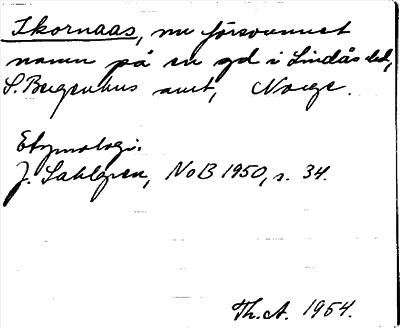 Skornaas, nu försvunnet
namn på en gd i Lindås skd,
S. Bergenhus amt, Norge.
Etymologi:
J. Sahlgren, NoB 1950, s. 34.
Th. A. 1954.